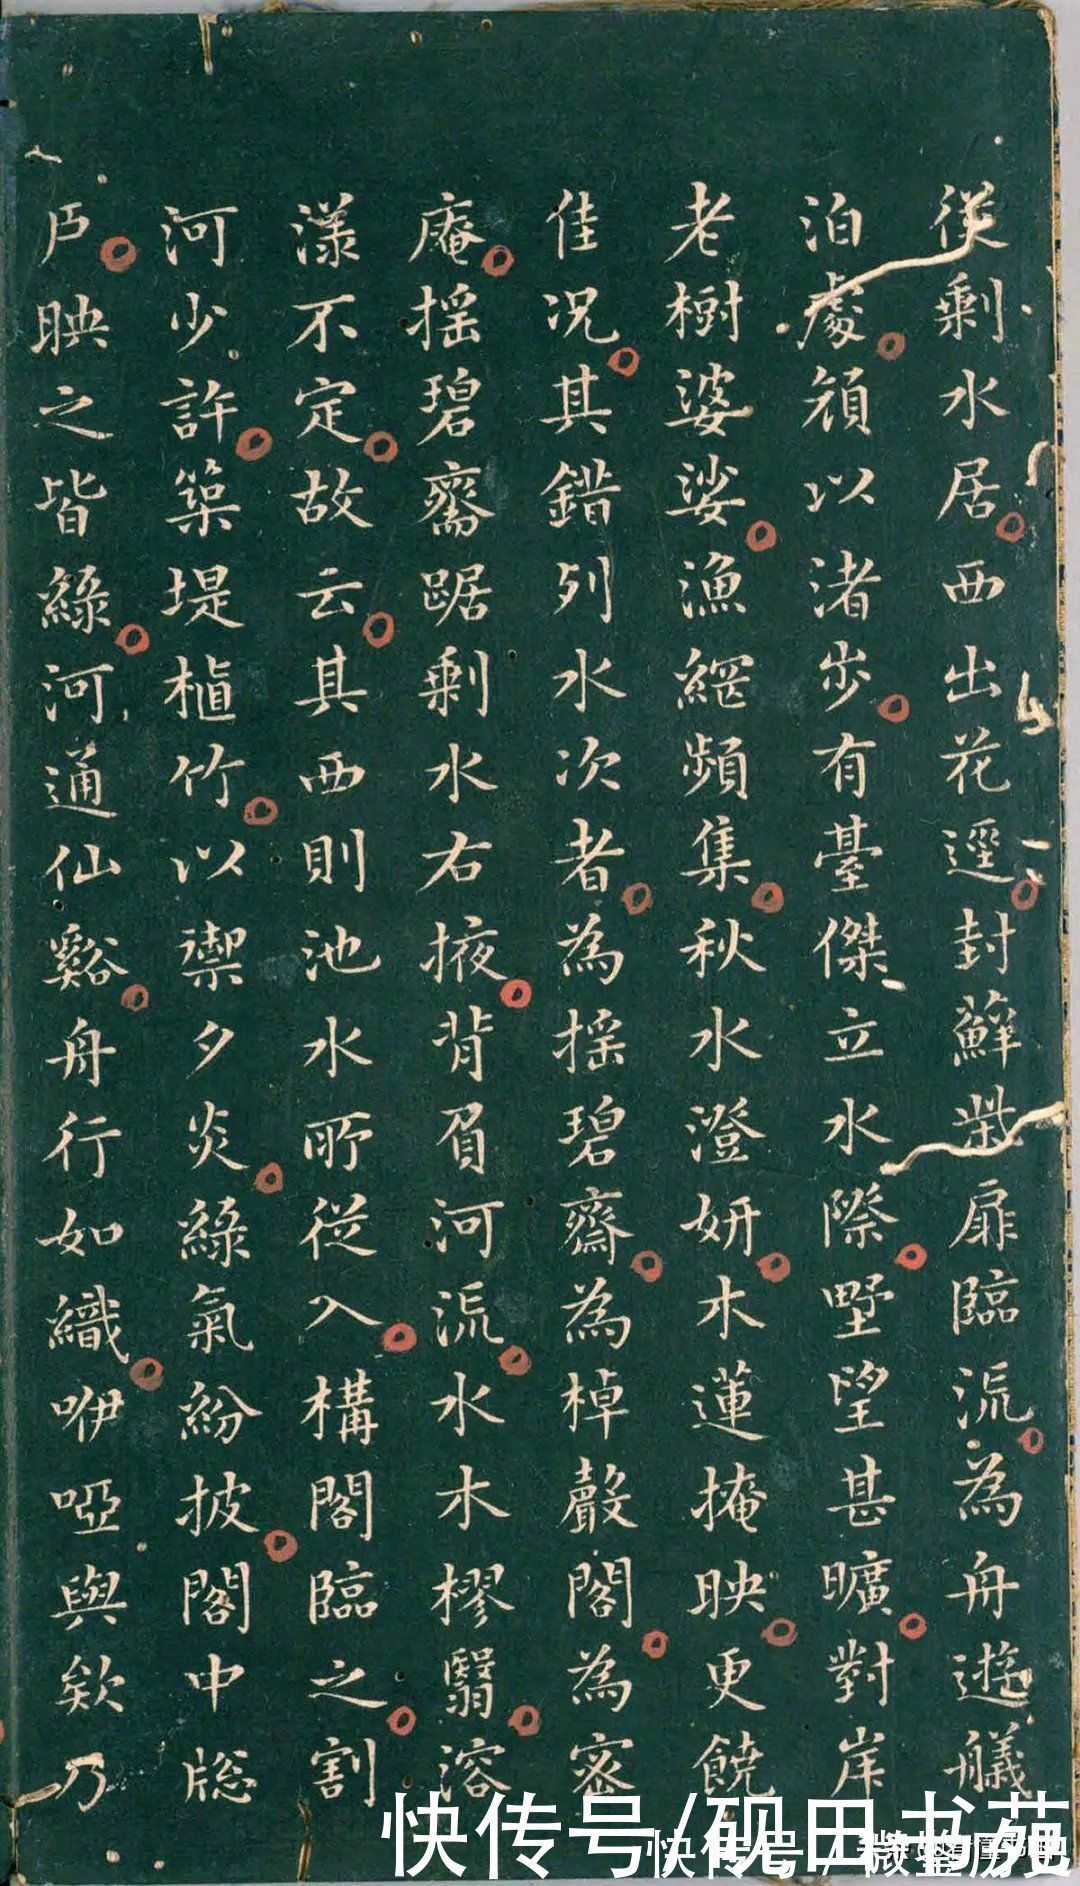 從剩水居西出花逕封蘚柴扉臨流為舟遊艤
泊處頎以渚步有臺傑立水際墅望甚曠對岸
老樹婆娑漁網頻集秋水澄妍木蓮掩映更饒
佳况其錯列水次者為摇碧齋為棹聲閣為密
庵摇碧齋踞剩水右掖背負河流水木樛翳溶
漾不定故云其西則池水所從入構閣臨之割
河少許築堤植竹以禦夕炎綠氣紛披閣中牕
戶映之皆綠河通仙谿舟行如織咿啞與欸乃
快传号/砚田书苑